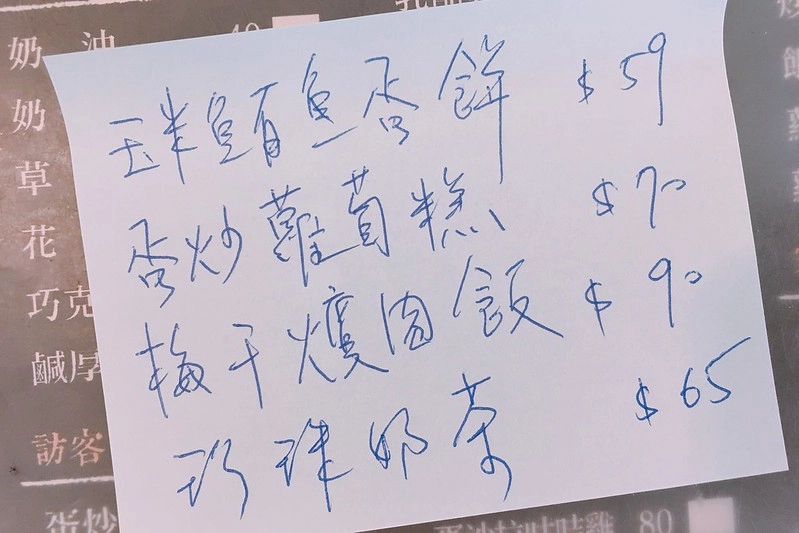 奶油 40
奶
草
花
巧克
鹹厚
訪客
蛋炒
玉米鮪魚蛋餅 $59
蛋炒蘿蔔糕 $70
梅干爌肉飯 $90
珍珠奶茶 $65
80